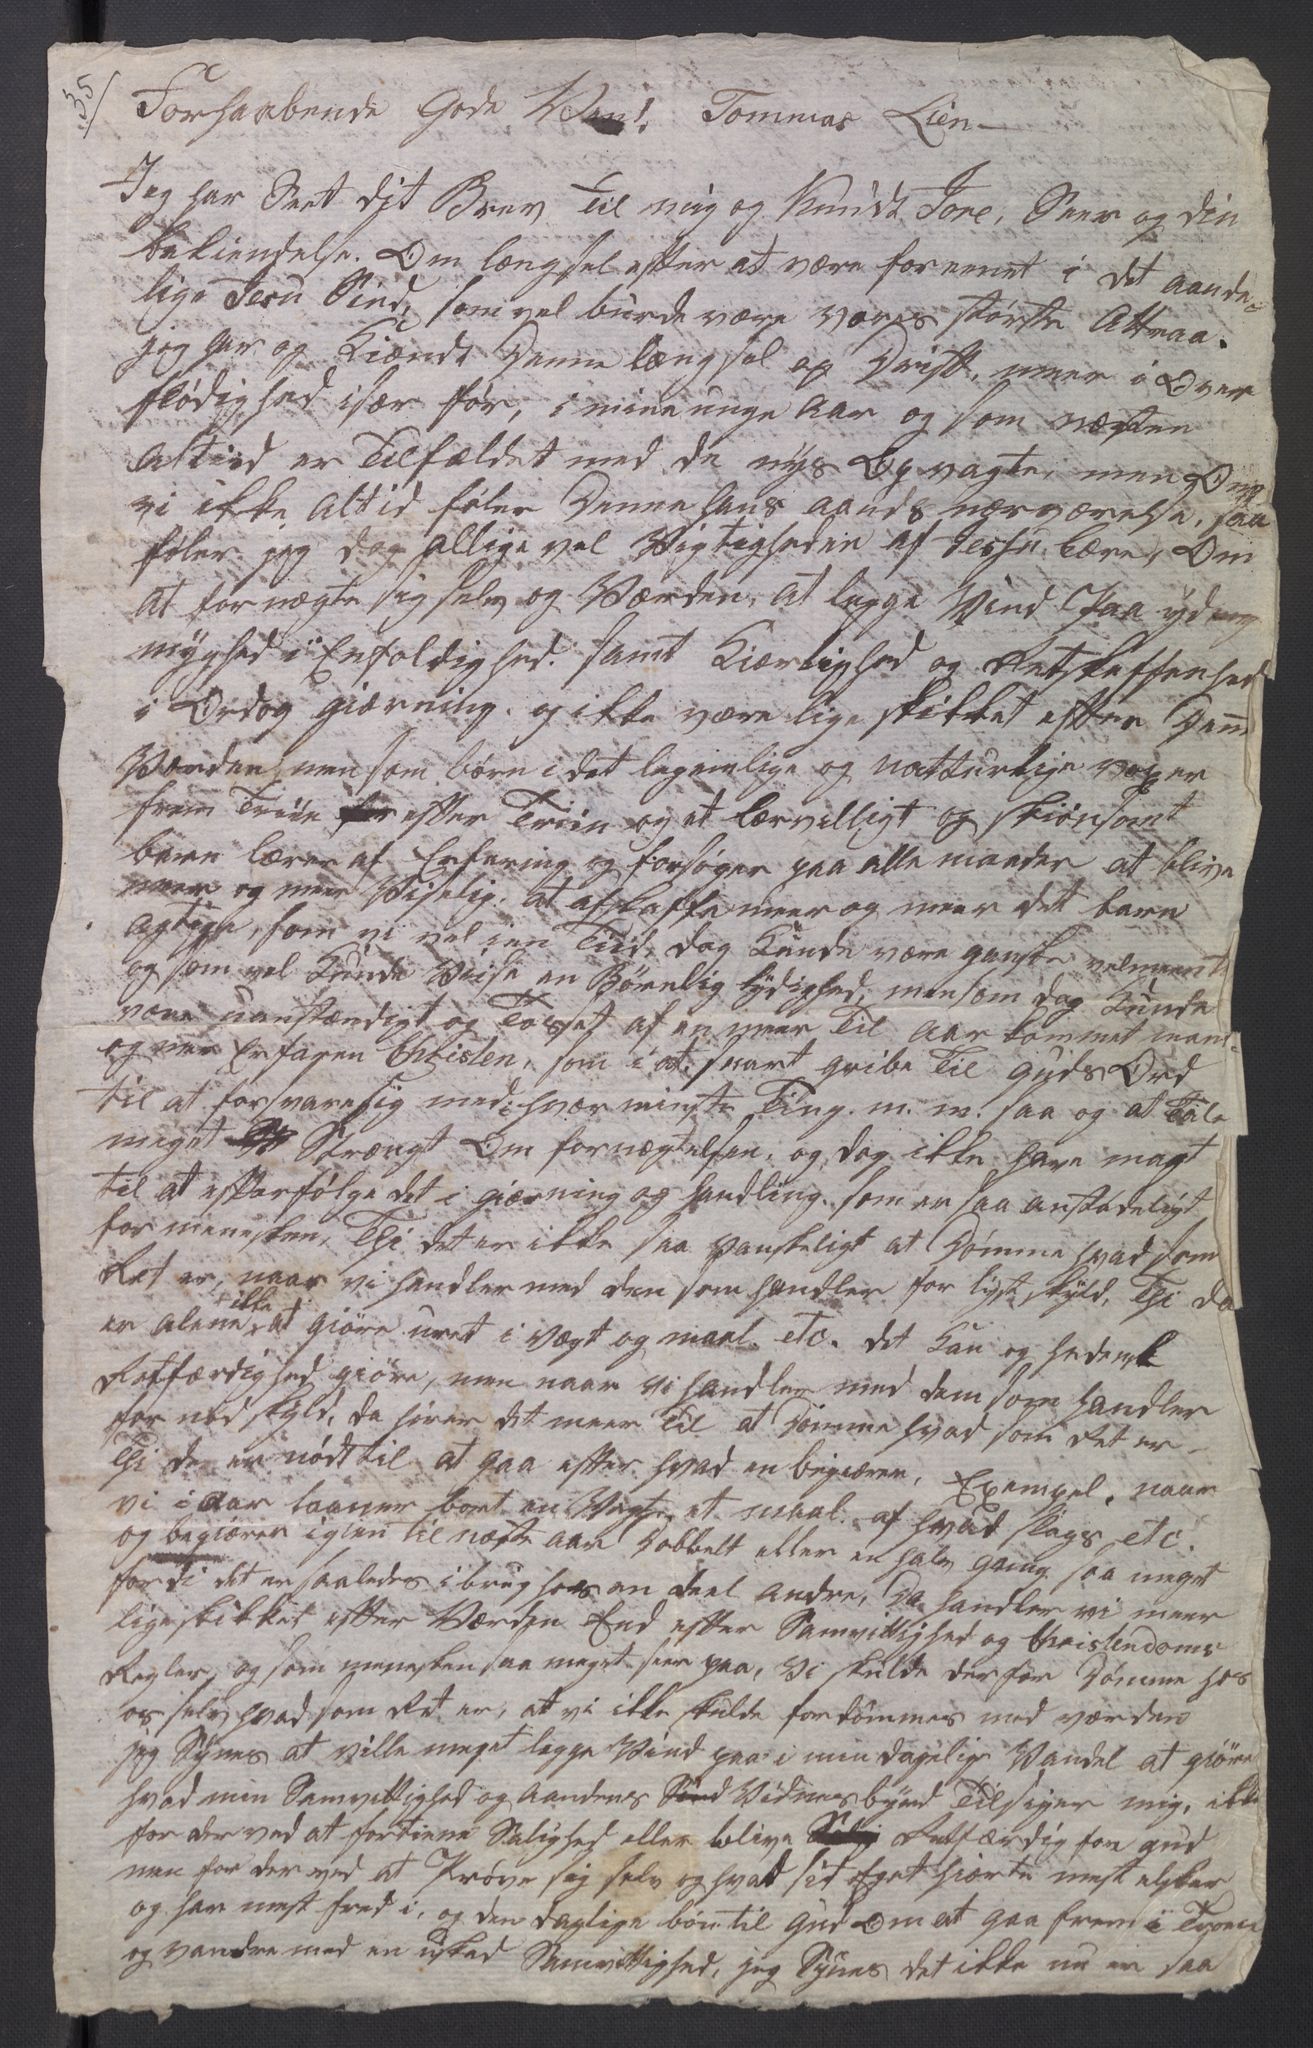 35/
Forhaabende Gode Ven! Tommas Lien
Jeg har Seet dit Brev Til mig og Knud Tore, Seer og din
bekiendelse. Om længsel efter at være foreenet i det aande-
lige Jesu Sind, som vel burde være vores største Attraa.
jeg har og Kiændt Denne længsel og Drift, meer i Over
flødighed især før, i mine unge Aar og som næsten
Altiid er Tilfældet med de nys Opvagte, men Om
vi ikke Altid føler Denne hans Aands nærværelse, saa
føler jeg dog allige vel Vigtigheden af Jeshu lære, Om
At fornægte sig selv og Værden, At legge Vind Paa ydmy
myghed i Enfoldighed. samt Kiærlighed og Retskaffenhed
i Ord og giærning. og ikke være lige skikket efter Denne
Værden, men som børn i det legemlige og natturlige voxer
frem Triin efter Triin og et lærvilligt og skiønsomt
barn lærer af Erfaring og forsøger paa alle maader at blive
meer og meer Viselig. At afskaffe meer og meer det barn
agtige, som vi vel i en Tiid dog Kunde være ganske velmeent
og som vel Kunde Vise en Børnelig lydighed, men som dog Kunde
være uanstændigt og Tosset af en meer Til Aar kommet mand
og meer Erfaren Christen, som i at snart gribe Til Guds Ord
til at forsvare sig med i hvær minste Ting. m. m. saa og at Tale
meget Strængt Om fornægtelsen, og dog ikke have magt
til at efterfølge det i giærning og handling. som er saa anstødeligt
for mennesken, Thi det er ikke saa vanskeligt at Dømme hvad som
Ret er, naar vi handler med den som handler for lyst skyld, Thi da
er alene ikke at giøre uret i vægt og maal. etc. det Kan og hedensk
Retfærdighed giøre, men naar vi handler med dem som handler
for nød skyld, da hører det meer Til at Dømme hvad som Ret er
Thi de er nødt til at gaa efter hvad en begiærer, Exempel, naar
vi i Aar laaner bort en Vægt, et maal. af hvad slags etc.
og begiærer igien til næste aar Dobbelt eller en halv gang saa meget
fordi det er saaledes i brug hos en deel Andre, Da handler vi meer
lige skikket efter Værden End efter Samvittighed og Christendoms
Regler, og som mennesken saa meget seer paa, Vi skulde derfor Dømme hos
os selv hvad som Ret er, at vi ikke skulde fordømmes med værden
jeg Synes at ville meget legge Vind paa i min dagelig Vandel at giøre
hvad min Samvittighed og Aandens Vidnesbyrd Tilsiger mig, ikke
for derved at fortiene Salighed eller blive Retfærdig for Gud
men for derved at Prøve sig selv og hvad sit eget hiærte mest elsker
og har mest fred i, og den daglige bøn til Gud Om at gaa frem i Troen
og vandre med en uskad Samvittighed, jeg Synes det ikke nu er saa